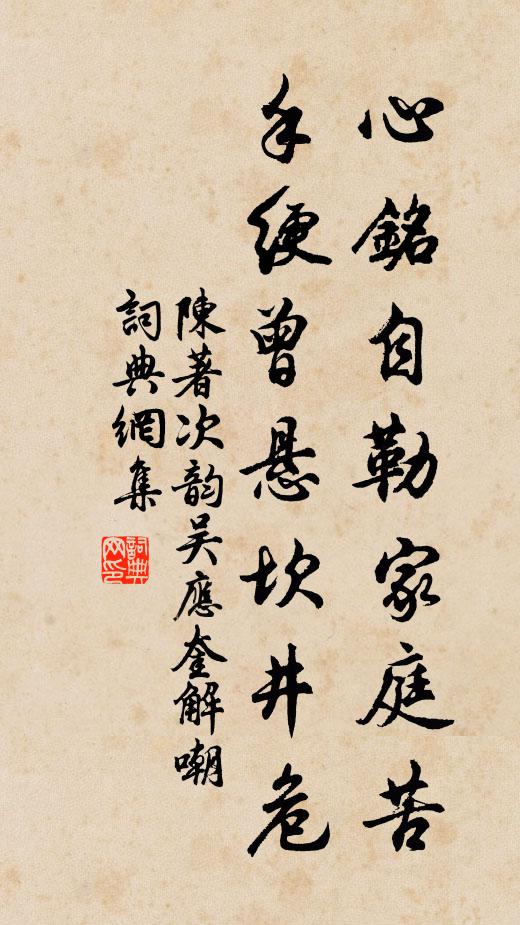 心銘自勒家庭苦
手綆曾悬坎井危
陳著次韵吴應奎解嘲
詞典網集
詞典网印